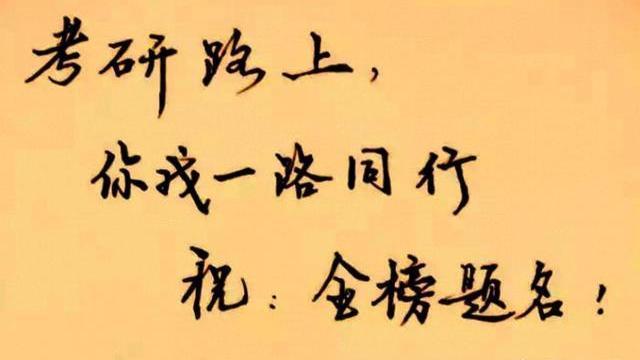 考研路上，
你我一路同行
祝：金榜题名！